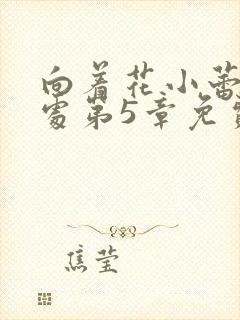 向着花小蕾
处第5章免
焦莹